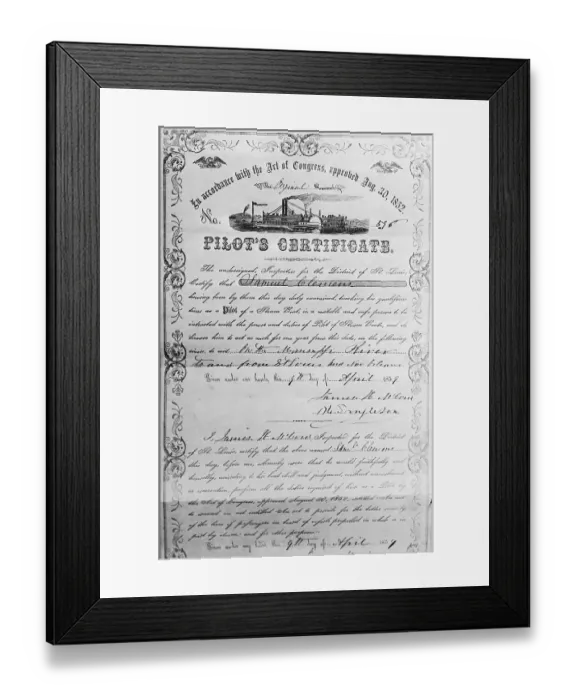 In accordance with the Act of Congress, approved Aug. 30, 1852.
Original
No.
PILOT'S CERTIFICATE.
The undersigned, Inspectors for the District of St. Louis
Certify that Samuel Clemens
having been by them this day duly examined, touching his qualifica-
tions as a Pilot of a Steam Boat, is a suitable and safe person to be
intrusted with the power and duties of Pilot of Steam Boats, and do
license him to act as such for one year from this date, on the following
rivers, to wit: On the Mississippi River
to and from St Louis and New Orleans
Given under our hands, this 9th day of April 1859
James H McCord
I, James H McCord Inspector for the District
of St. Louis, certify that the above named Saml Clemens
this day, before me, solemnly swore that he would faithfully and
honestly, according to his best skill and judgment, without concealment
or reservation, perform all the duties required of him as a Pilot by
the Act of Congress, approved August 30, 1852, entitled "An act
to amend an act entitled 'An act to provide for the better security
of the lives of passengers on board of vessels propelled in whole or in
part by steam,' and for other purposes."
Given under my hand, this 9th day of April 1859